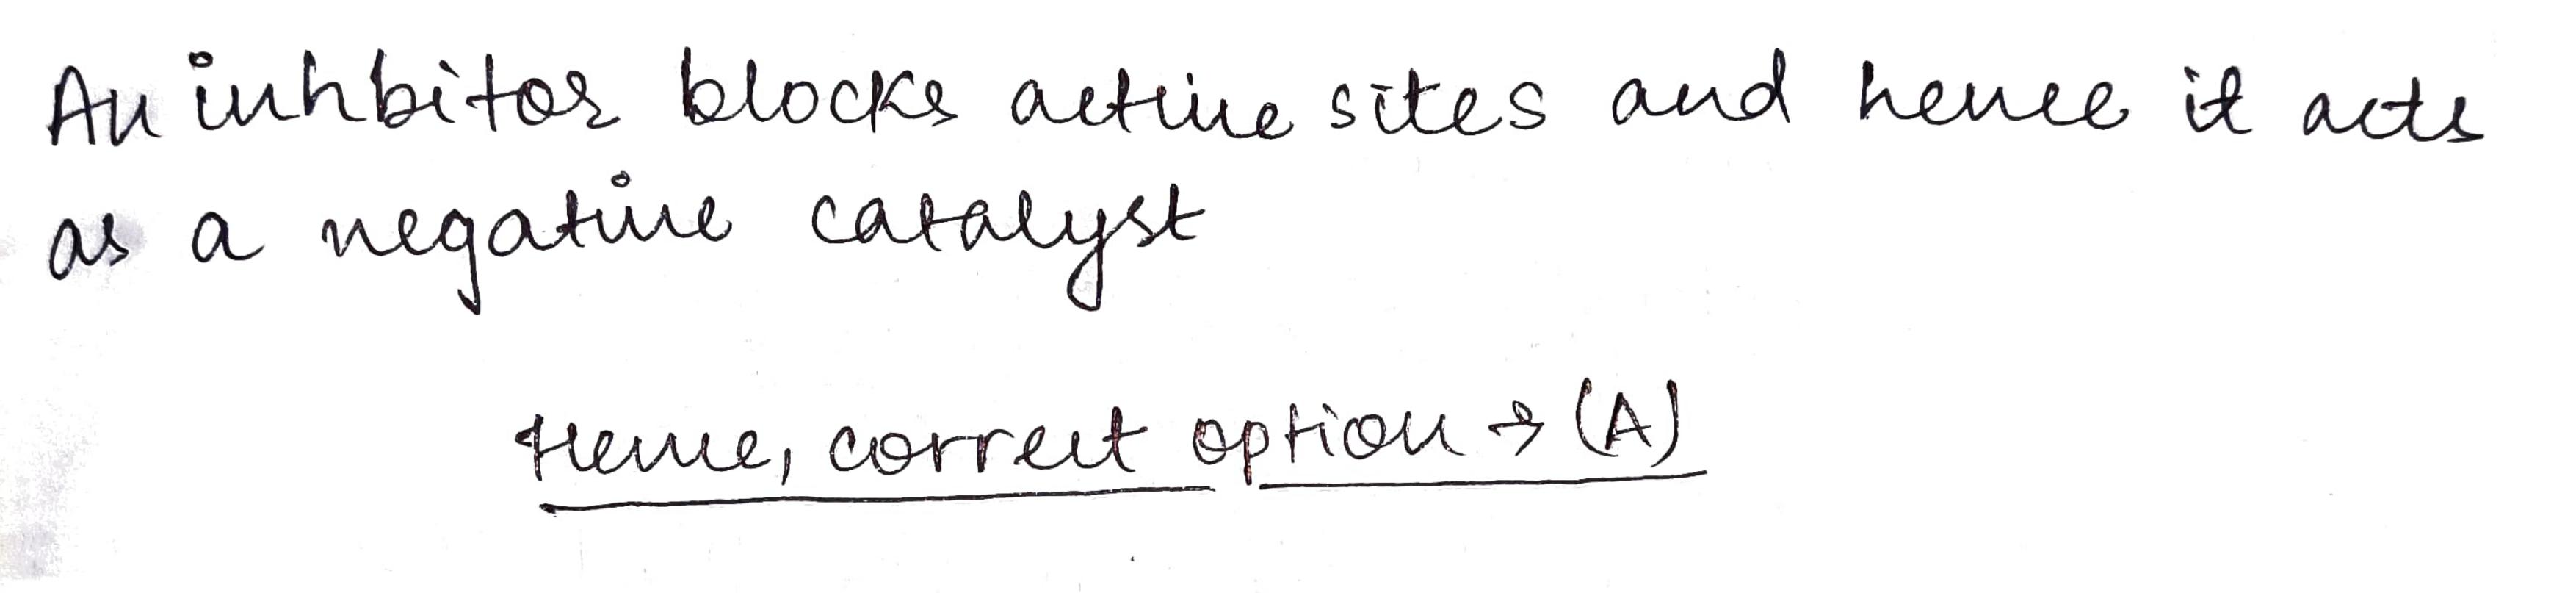 An inhbitor blocks active sites and hence it acts
as a negative catalyst
Hence, correct option → (A)